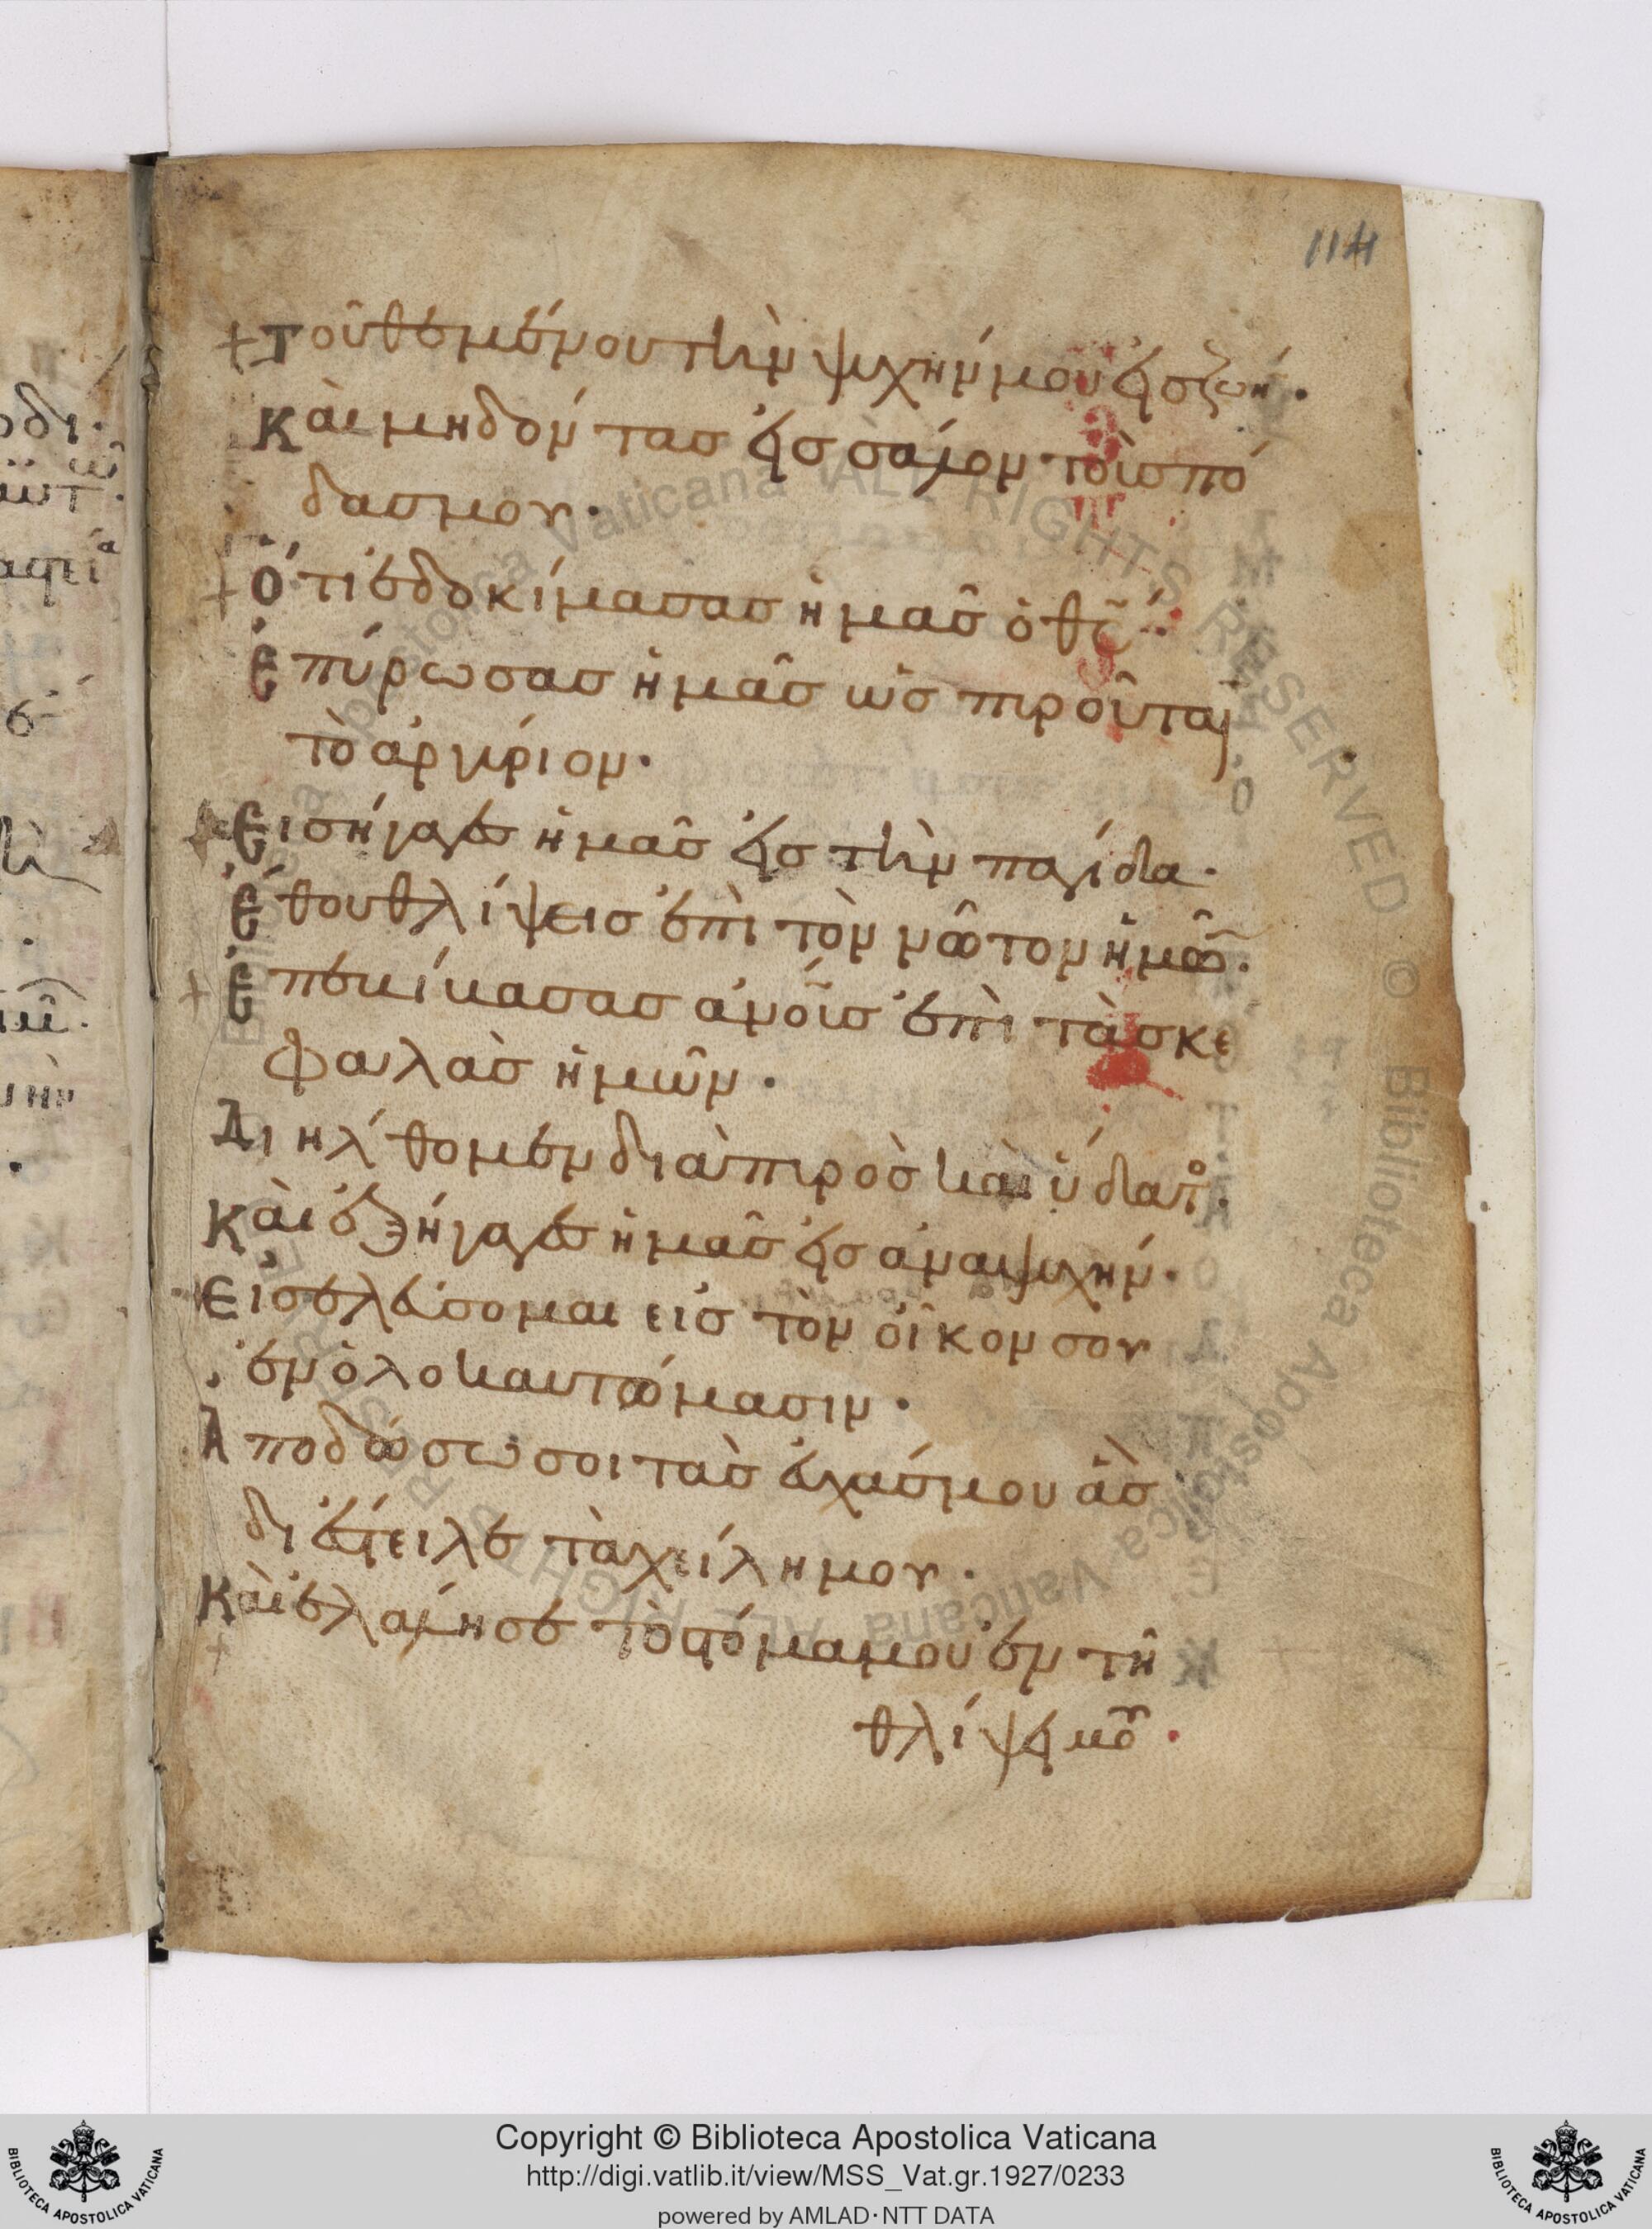 114
+ Τοῦ θεμένου τὴν ψυχήν μου εἰς ζωήν·
Καὶ μὴ δόντας εἰς σάλον τοὺς πό
δας μου·
+ Ὅτι ἐδοκίμασας ἡμᾶς ὁ θς·
Ἐπύρωσας ἡμᾶς ὡς πυροῦται
τὸ ἀργύριον·
+ Εἰσήγαγες ἡμᾶς εἰς τὴν παγίδα·
Ἔθου θλίψεις ἐπὶ τὸν νῶτον ἡμῶν·
+ Ἐπεβίβασας ἀνοὺς ἐπὶ τὰς κε
φαλὰς ἡμῶν·
Διήλθομεν διὰ πυρὸς καὶ ὕδατος·
Καὶ ἐξήγαγες ἡμᾶς εἰς ἀναψυχήν·
Εἰσελεύσομαι εἰς τὸν οἶκον σου
ἐν ὁλοκαυτώμασιν·
Ἀποδώσω σοι τὰς εὐχάς μου ἃς
διέστειλε τὰ χείλη μου·
Καὶ ἐλάλησε τὸ στόμα μου ἐν τῇ
+
θλίψει μου·
Copyright © Biblioteca Apostolica Vaticana
http://digi.vatlib.it/view/MSS_Vat.gr.1927/0233
powered by AMLAD·NTT DATA
BIBLIOTECA APOSTOLICA VATICANA
BIBLIOTECA APOSTOLICA VATICANA
Biblioteca Apostolica Vaticana ALL RIGHTS RESERVED © Biblioteca Apostolica Vaticana ALL RIGHTS RESERVED ©